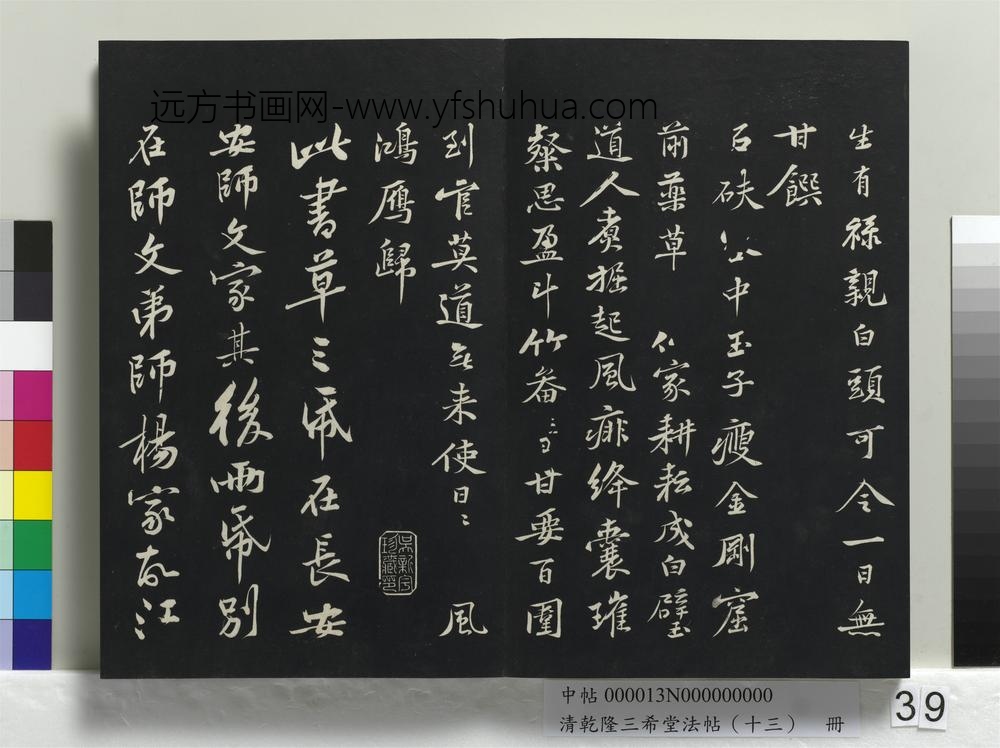 生有祿親白頭可令一日無
甘饌
石砆山中玉子瘦金剛窟
前藥草 仙家耕耘成白璧
道人煮掘起風痱絳囊璀
粲思盈斗竹畨甘要百圍
到官莫道無來使日日 風
鴻鴈歸
吳新宇珍藏印
此書草三紙在長安
安師文家其後兩紙別
在師文弟師楊家故江
远方书画网-www.yfshuhua.com
中帖 000013N000000000
清乾隆三希堂法帖（十三） 冊
39